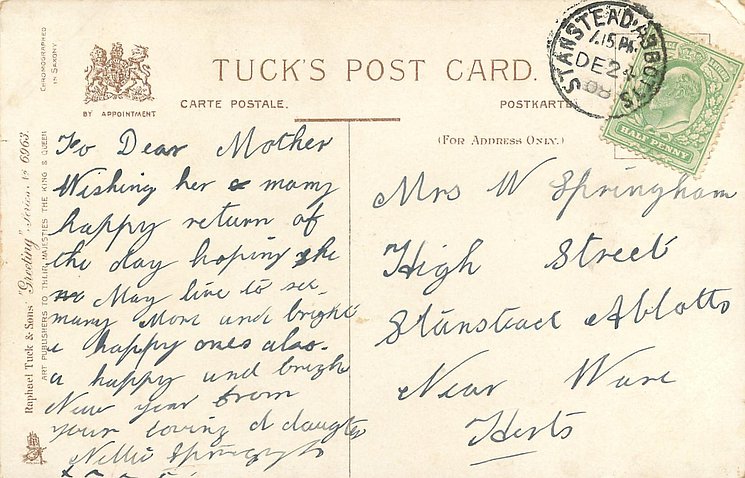 CHROMOGRAPHED
IN SAXONY.
BY APPOINTMENT
TUCK'S POST CARD.
CARTE POSTALE.
POSTKARTE
(FOR ADDRESS ONLY.)
STANSTEAD ABBOTTS
7.15 PM
DE 24
08
HALF PENNY
Raphael Tuck & Sons' "Greeting" Series No 6963.
ART PUBLISHERS TO THEIR MAJESTIES THE KING & QUEEN
To Dear Mother
Wishing her many
happy return of
the day hoping she
May live to see
many More and bright
& happy ones also
a happy and bright
New year from
your loving daughter
Nellie
Mrs W Springham
High Street
Stanstead Abbotts
Near Ware
Herts